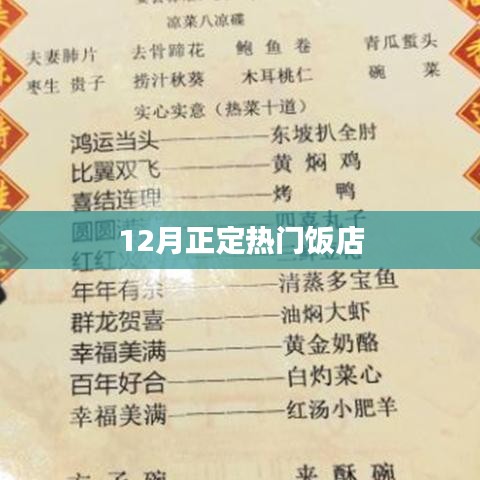 凉菜八凉碟
夫妻肺片 去骨蹄花 鲍鱼卷 青瓜蜇头
枣生贵子 捞汁秋葵 木耳桃仁 碗菜
实心实意（热菜十道）
鸿运当头——————东坡扒全肘
比翼双飞——————黄焖鸡
喜结连理——————烤鸭
圆圆满 四喜丸子
12月正定热门饭店
红红火
年年有余——————清蒸多宝鱼
群龙贺喜——————油焖大虾
幸福美满——————黄金奶酪
百年好合——————白灼菜心
幸福美满——————红汤小肥羊
夹酥碗